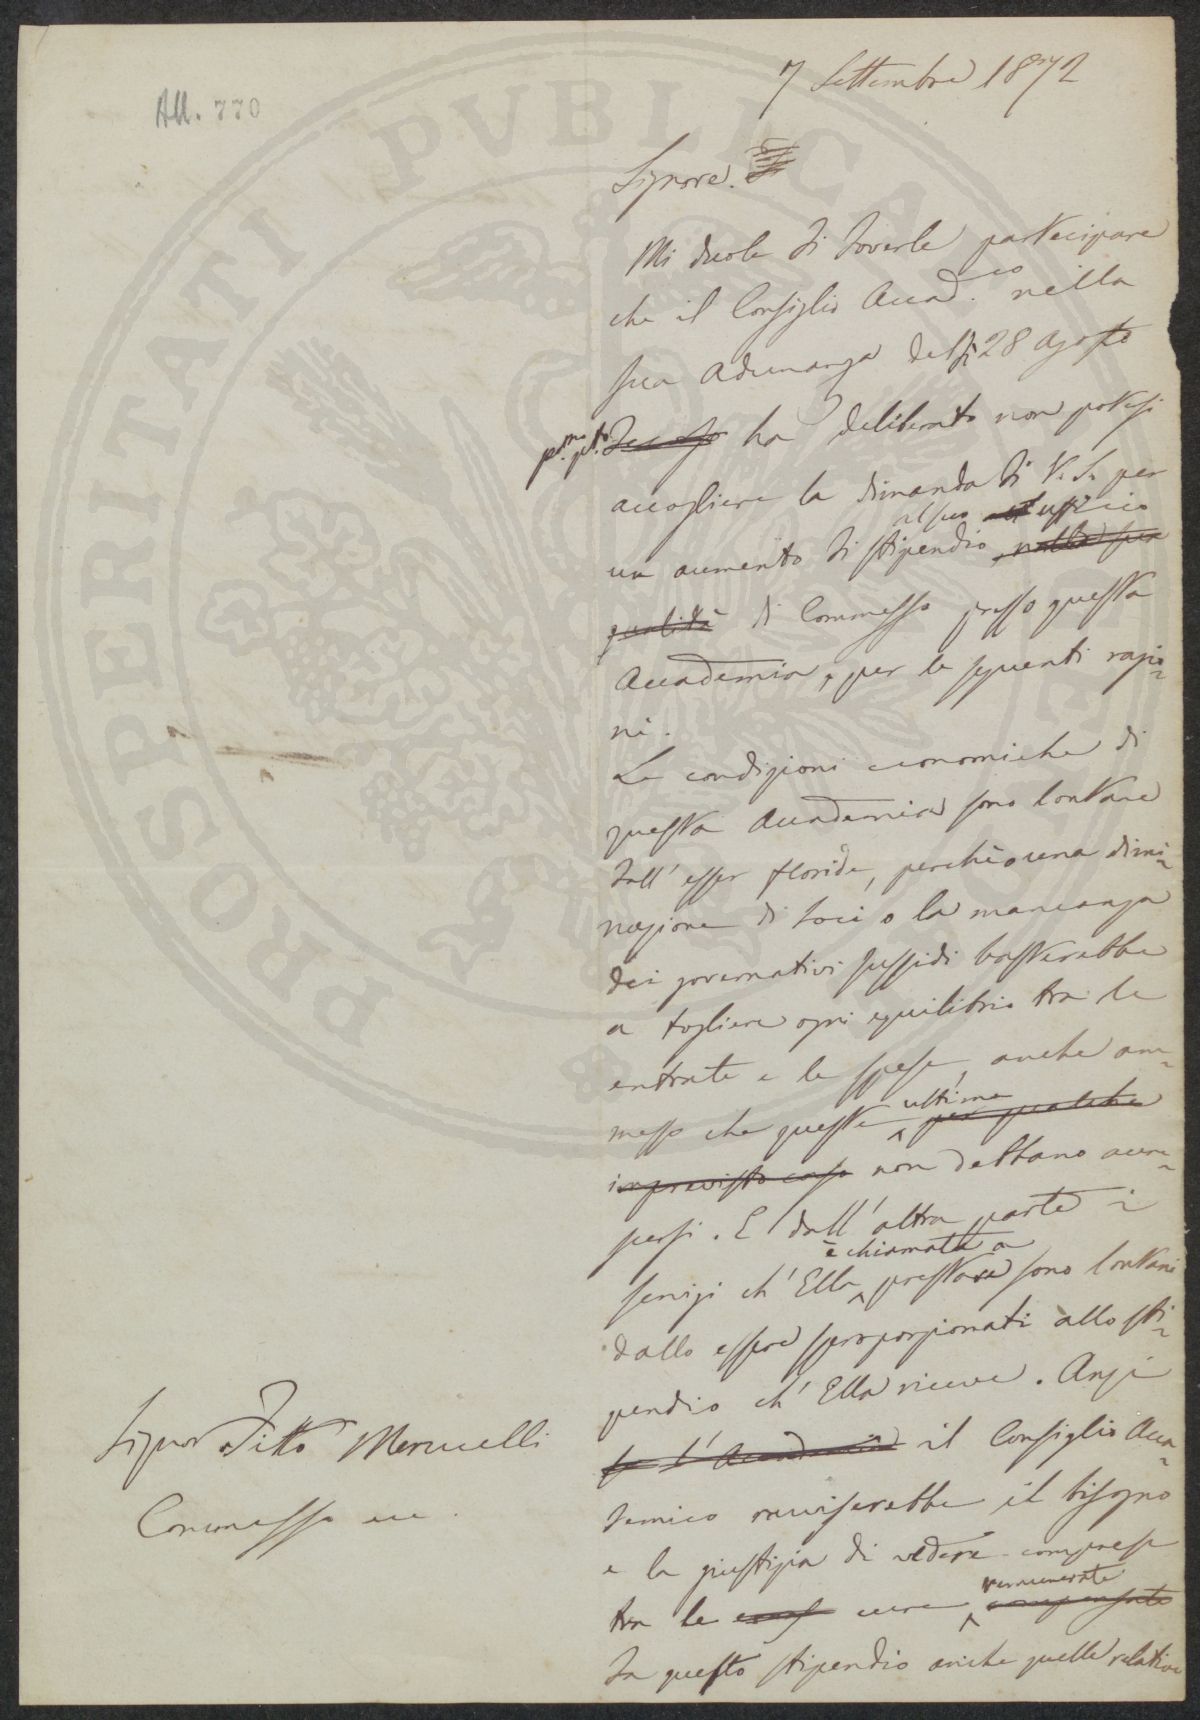 All. 770
7 Settembre 1872
Signore.
Mi duole di doverle partecipare
che il Consiglio Accad.co nella
sua Adunanza del dì 28 Agosto
pmo. ptto. decorso ha deliberato non potersi
accogliere la dimanda di V. S. per
al suo uffizio
un aumento di stipendio nella sua
qualità di Commesso presso questa
Accademia, per le seguenti ragio=
ni.
Le condizioni economiche di
questa Accademia sono lontane
dall'esser floride, perchè o una dimi=
nuzione di Soci o la mancanza
dei governativi sussidi basterebbe
a togliere ogni equilibrio tra le
entrate e le spese, anche am=
ultime
messo che queste per qualche
imprevisto caso non debbano accre=
scersi. E dall'altra parte i
è chiamato a
servizi ch'Ella prestare sono lontani
dallo essere sproporzionati allo sti=
pendio ch'Ella riceve. Anzi
se l'Accademia il Consiglio Acca=
demico ravviserebbe il bisogno
e la giustizia di vedere comprese
remunerate
tra le cure compensate
da questo stipendio anche quelle relative
Signor Titto Merucelli
Commesso ecc.
PROSPERITATI PVBLICAE